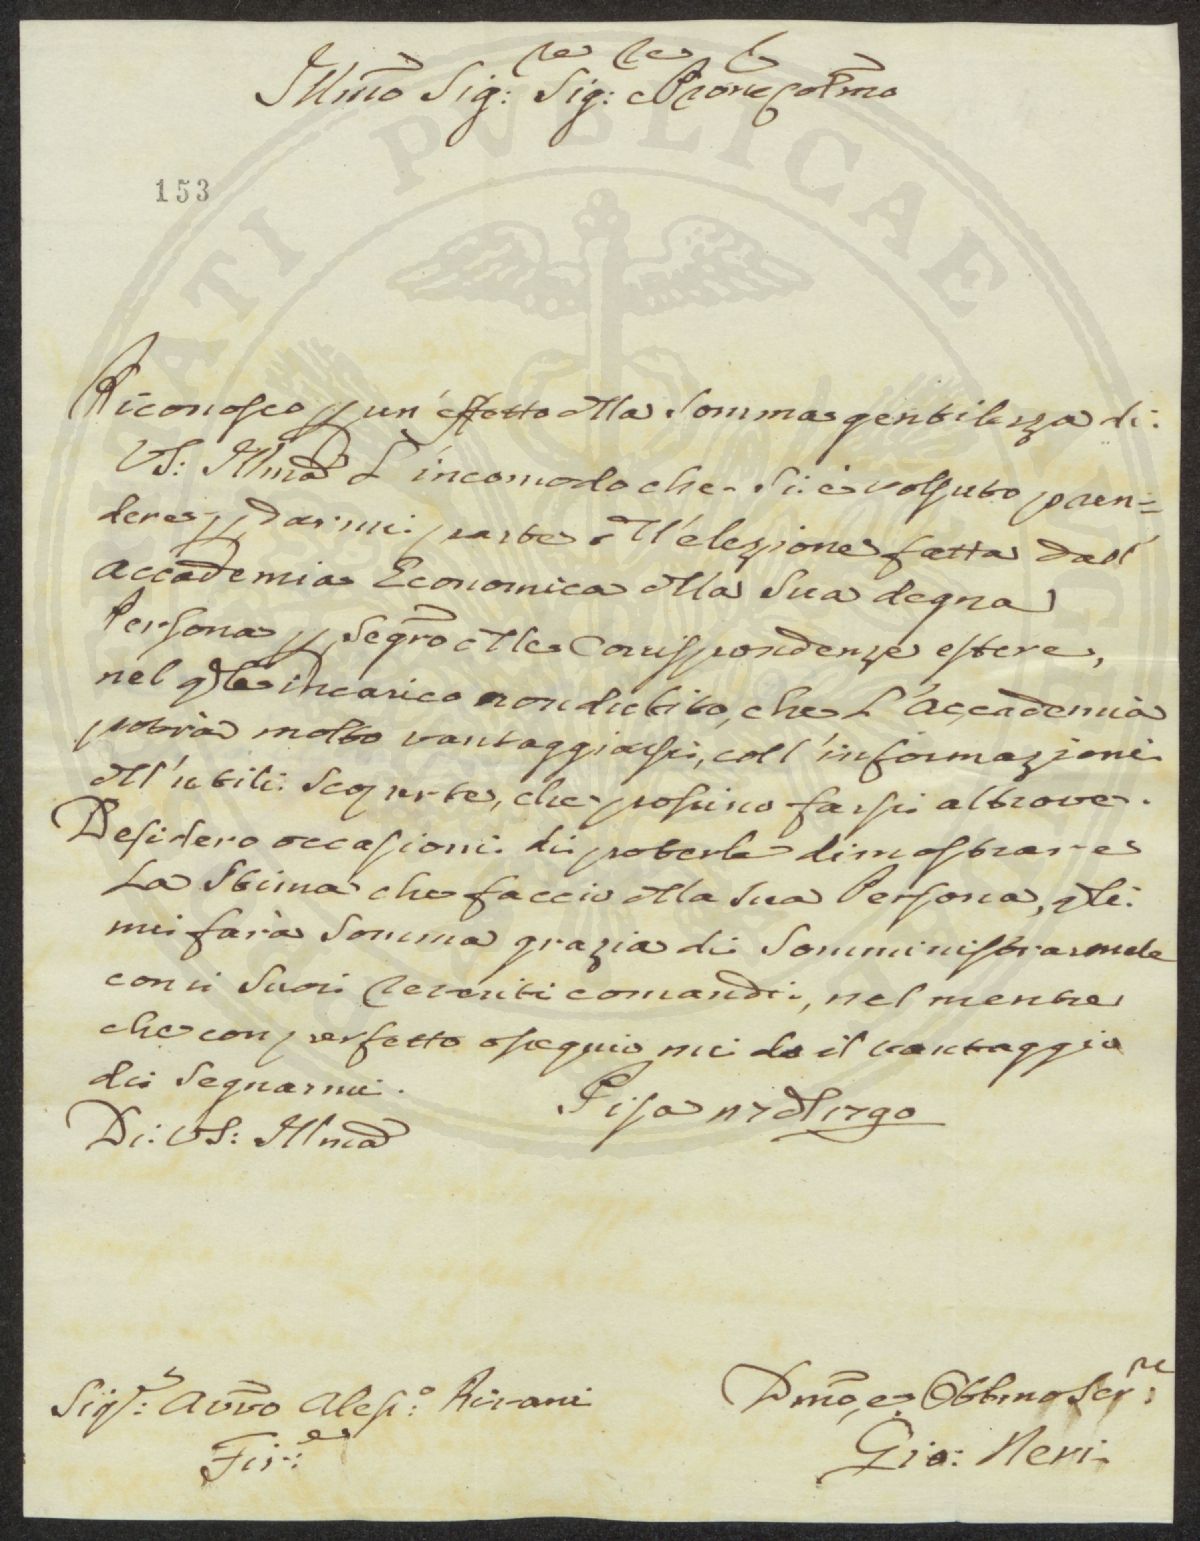 Illmo Sig:re Sig:re Prone Colmo
153
PUBLICAE
Riconosco p un'effetto della somma gentilezza di
VS: Illma L'incomodo che si è volsuto pren=
dere p darmi parte dell'elezione fatta dall'
Accademia Economica della Sua degna
Persona p Segrio delle Corrispondenze estere,
nel qle incarico non dubito, che L'Accademia
potrà molto vantaggiarsi, coll'informazioni
dell'utili scoperte, che possino farsi altrove.
Desidero occasioni di poterle dimostrare
La Stima che faccio della sua Persona, qle
mi farà somma grazia di somministrarmele
con i suoi reveriti comandi, nel mentre
che con perfetto ossequio mi do il vantaggio
di segnarmi.
Pisa 1790
Di: VS: Illma
Sig:r Avvo Aless:o Rivani
Fir:e
Dmo, e Obbmo Ser:re
Gio: Neri